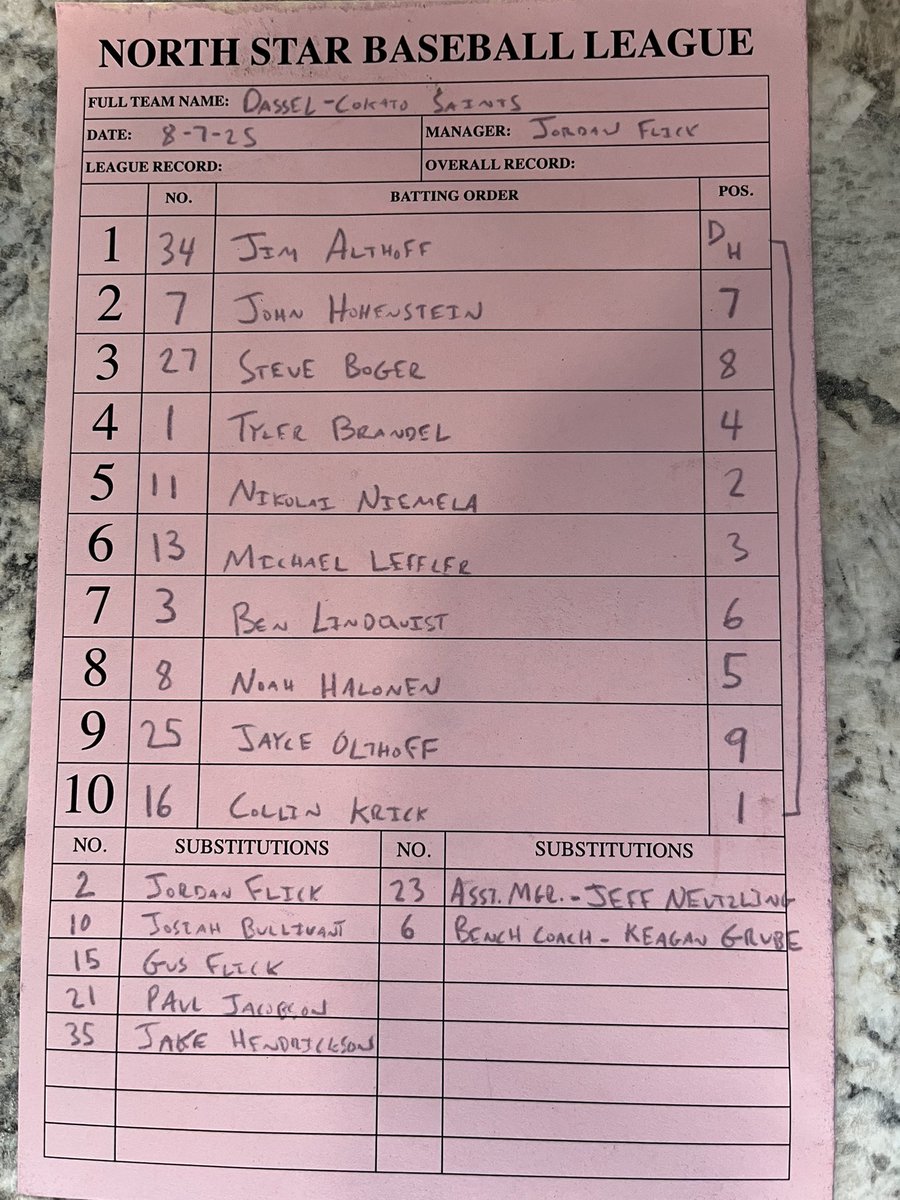 NORTH STAR BASEBALL LEAGUE
FULL TEAM NAME: DASSEL-COKATO SAINTS
DATE: 8-7-25 MANAGER: JORDAN FLICK
LEAGUE RECORD: OVERALL RECORD:
NO. BATTING ORDER POS.
1 34 JIM ALTHOFF DH
2 7 JOHN HOHENSTEIN 7
3 27 STEVE BOGER 8
4 1 TYLER BRANDEL 4
5 11 NIKOLAI NIEMELA 2
6 13 MICHAEL LEFFLER 3
7 3 BEN LINDQUIST 6
8 8 NOAH HALONEN 5
9 25 JAYCE OLTHOFF 9
10 16 COLLIN KRICK 1
NO. SUBSTITUTIONS NO. SUBSTITUTIONS
2 JORDAN FLICK 23 ASST. MGR. - JEFF NEUTZLING
10 JOSIAH BULLIVANT 6 BENCH COACH - KEAGAN GRUBE
15 GUS FLICK
21 PAUL JACOBSON
35 JAKE HENDRICKSON